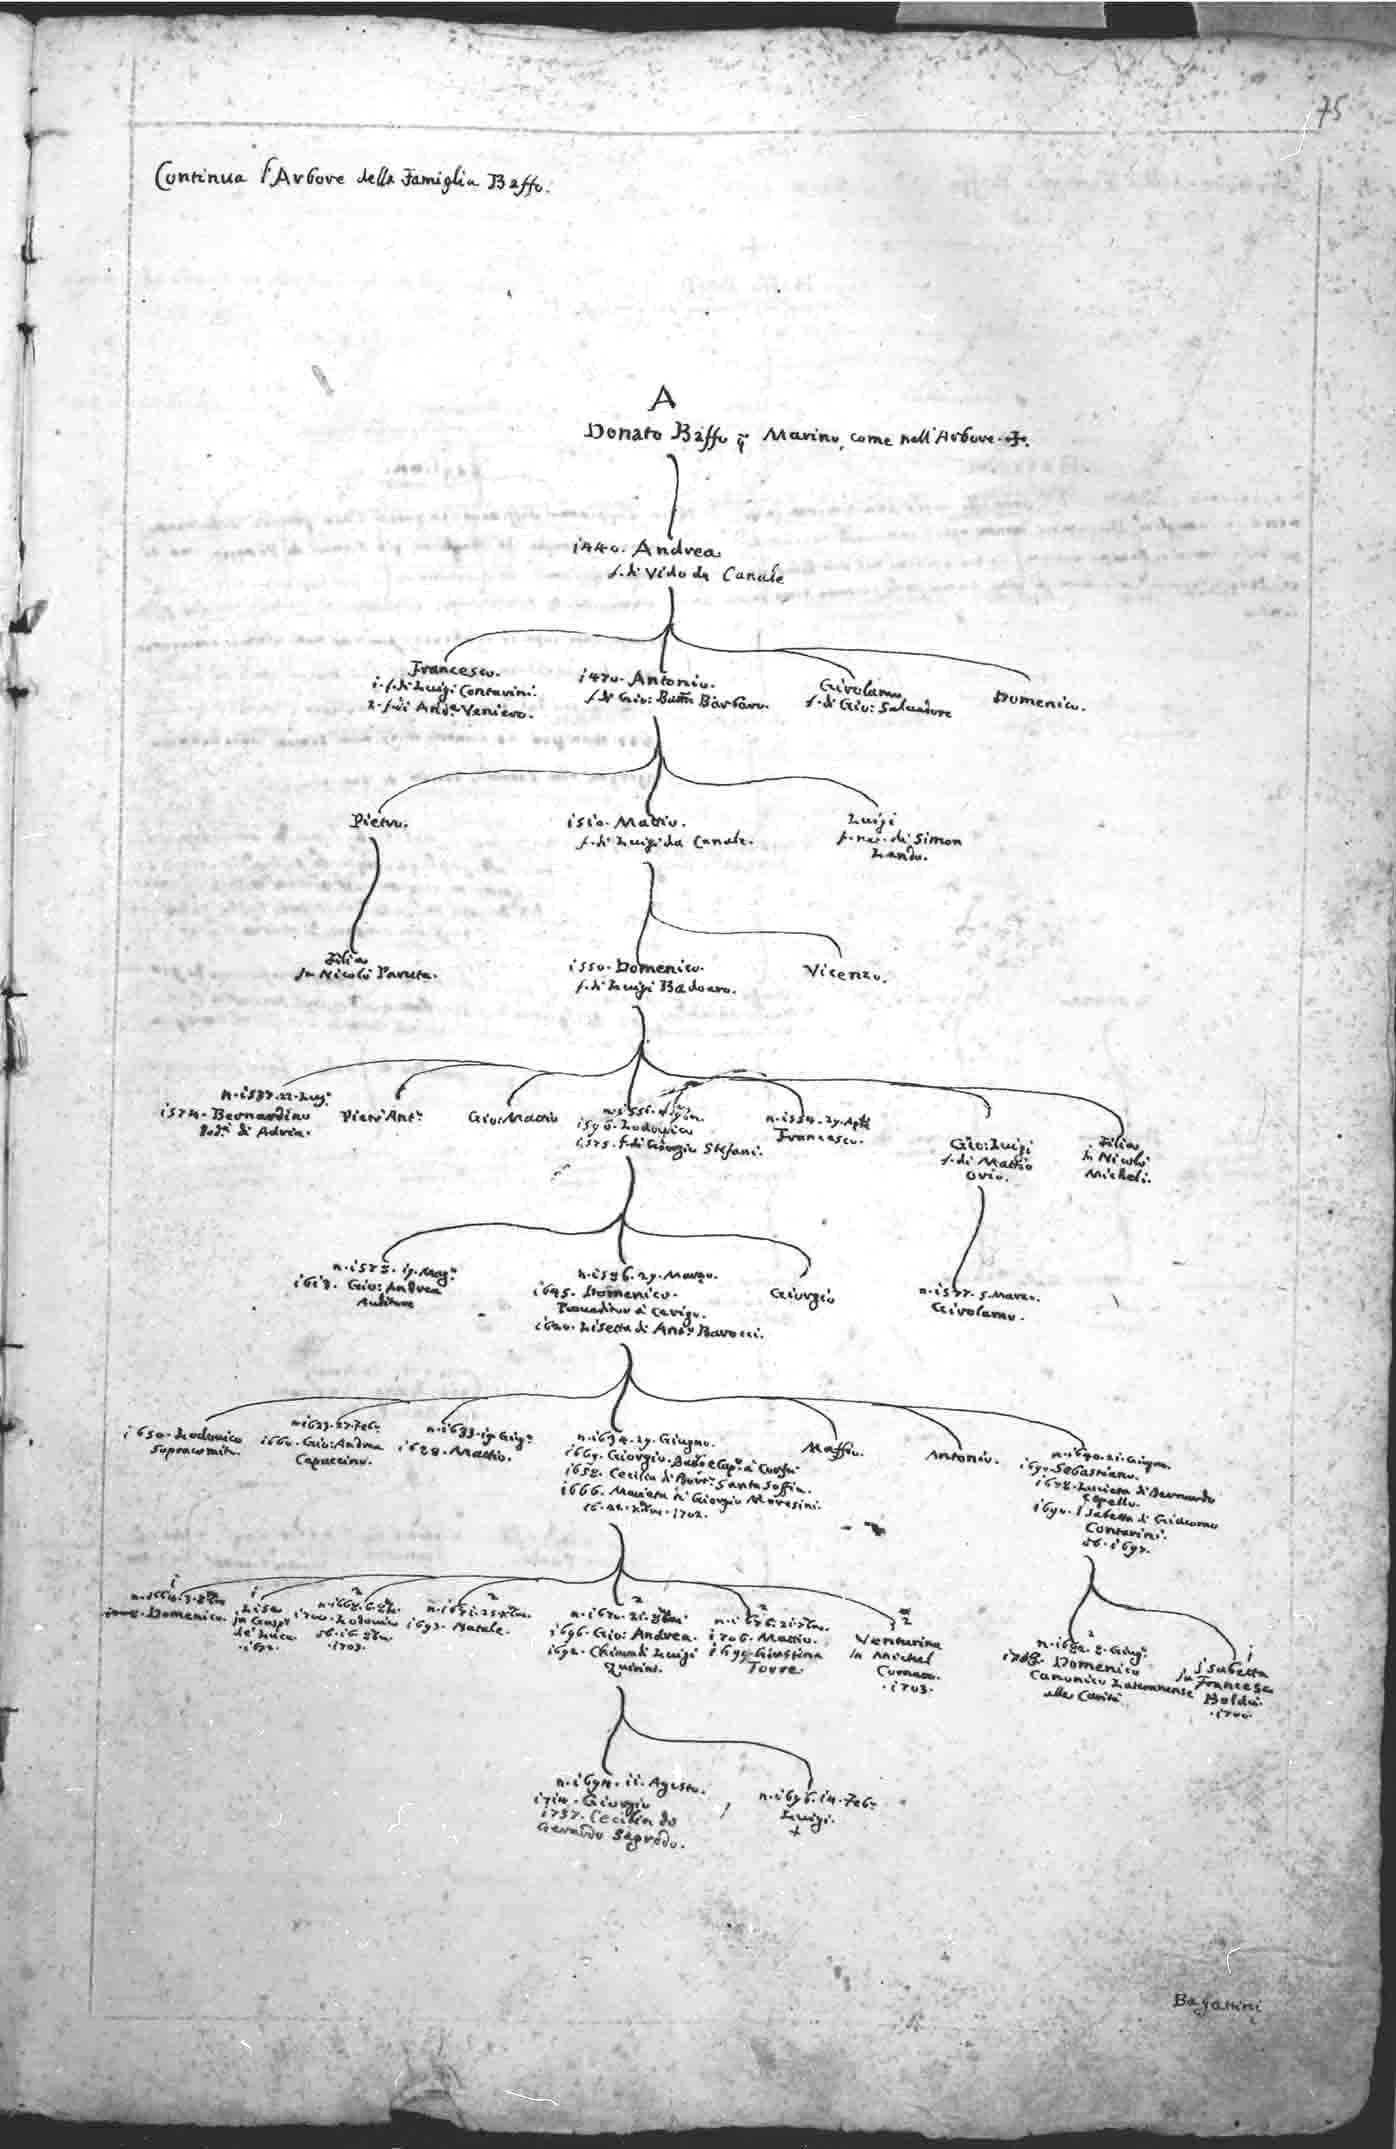 75
Continua l'Arbore della Famiglia Baffo.
A
Donato Baffo q Marino, come nell'Arbore
1440. Andrea
f. di Vido da Canale
Francesco.
1. f. di Luigi Contarini.
2. f. di And.ª Veniero.
1470. Antonio.
f. di Gio: Batta Barbaro.
Girolamo
f. di Gio: Salvadore
Domenico.
Pietro.
1510. Maffio.
f. di Luigi da Canale.
Luigi
f. nat. di Simon
Lando.
Filia
in Nicolò Paruta.
1550. Domenico.
f. di Luigi Badoaro.
Vicenzo.
n. 1537. 22. Lug.º
1574. Bernardino
Pod.à di Adria.
Pietr'Ant.º
Gio: Maffio
1596. Lodovico
1575. f. di Giorgio Stefani.
n. 1554. 29. Aple
Francesco.
Gio: Luigi
f. di Maffio
Orio.
Filia
in Nicolò
Micheli.
n. 1578. 19. Mag.º
1618. Gio: Andrea
Auditor
n. 1586. 29. Marzo.
1645. Domenico.
Proveditor à Cerigo.
1620. Lisetta di Ant.º Barocci.
Giorgio
n. 1577. 5. Marzo.
Girolamo.
1650. Lodovico
Sopracomito.
n. 1623. 27. Feb.º
1660. Gio: Andrea
Capuccino.
n. 1633. 19. Giug.º
1658. Maffio.
n. 1634. 29. Giugno.
1669. Giorgio. Bailo e Cap.º à Corfù
1658. Cecilia di Bort.º Santa Soffia.
1666. Marieta di Giorgio Moresini.
16. 1702.
Maffio.
Antonio.
n. 1640. 21. Giugno.
1670. Sebastiano.
1678. Lucieta di Bernardo
Capello.
1690. Isabetta di Giacomo
Contarini.
1697.
1
Domenico.
1
Lisa
in Gasp.º
de Luca
1692.
2
1700. Lodovico
1703.
2
1693. Natale.
2
1696. Gio: Andrea.
1692. Chiara di Luigi
Quirini.
2
1706. Maffio.
1699. Giustina
Torre
2
Venturina
in Michel
Cornaro.
1703.
2
n. 1682. 8. Giug.º
1708. Domenico
Canonico Lateranense
alla Carità
1
Isabetta
in Francesco
Boldù.
1700.
n. 1694. 11. Agosto.
1714. Giorgio
1737. Cecilia do
Gerardo Sagredo.
n. 1696. 14. Feb.º
Luigi.
+
Bagattini